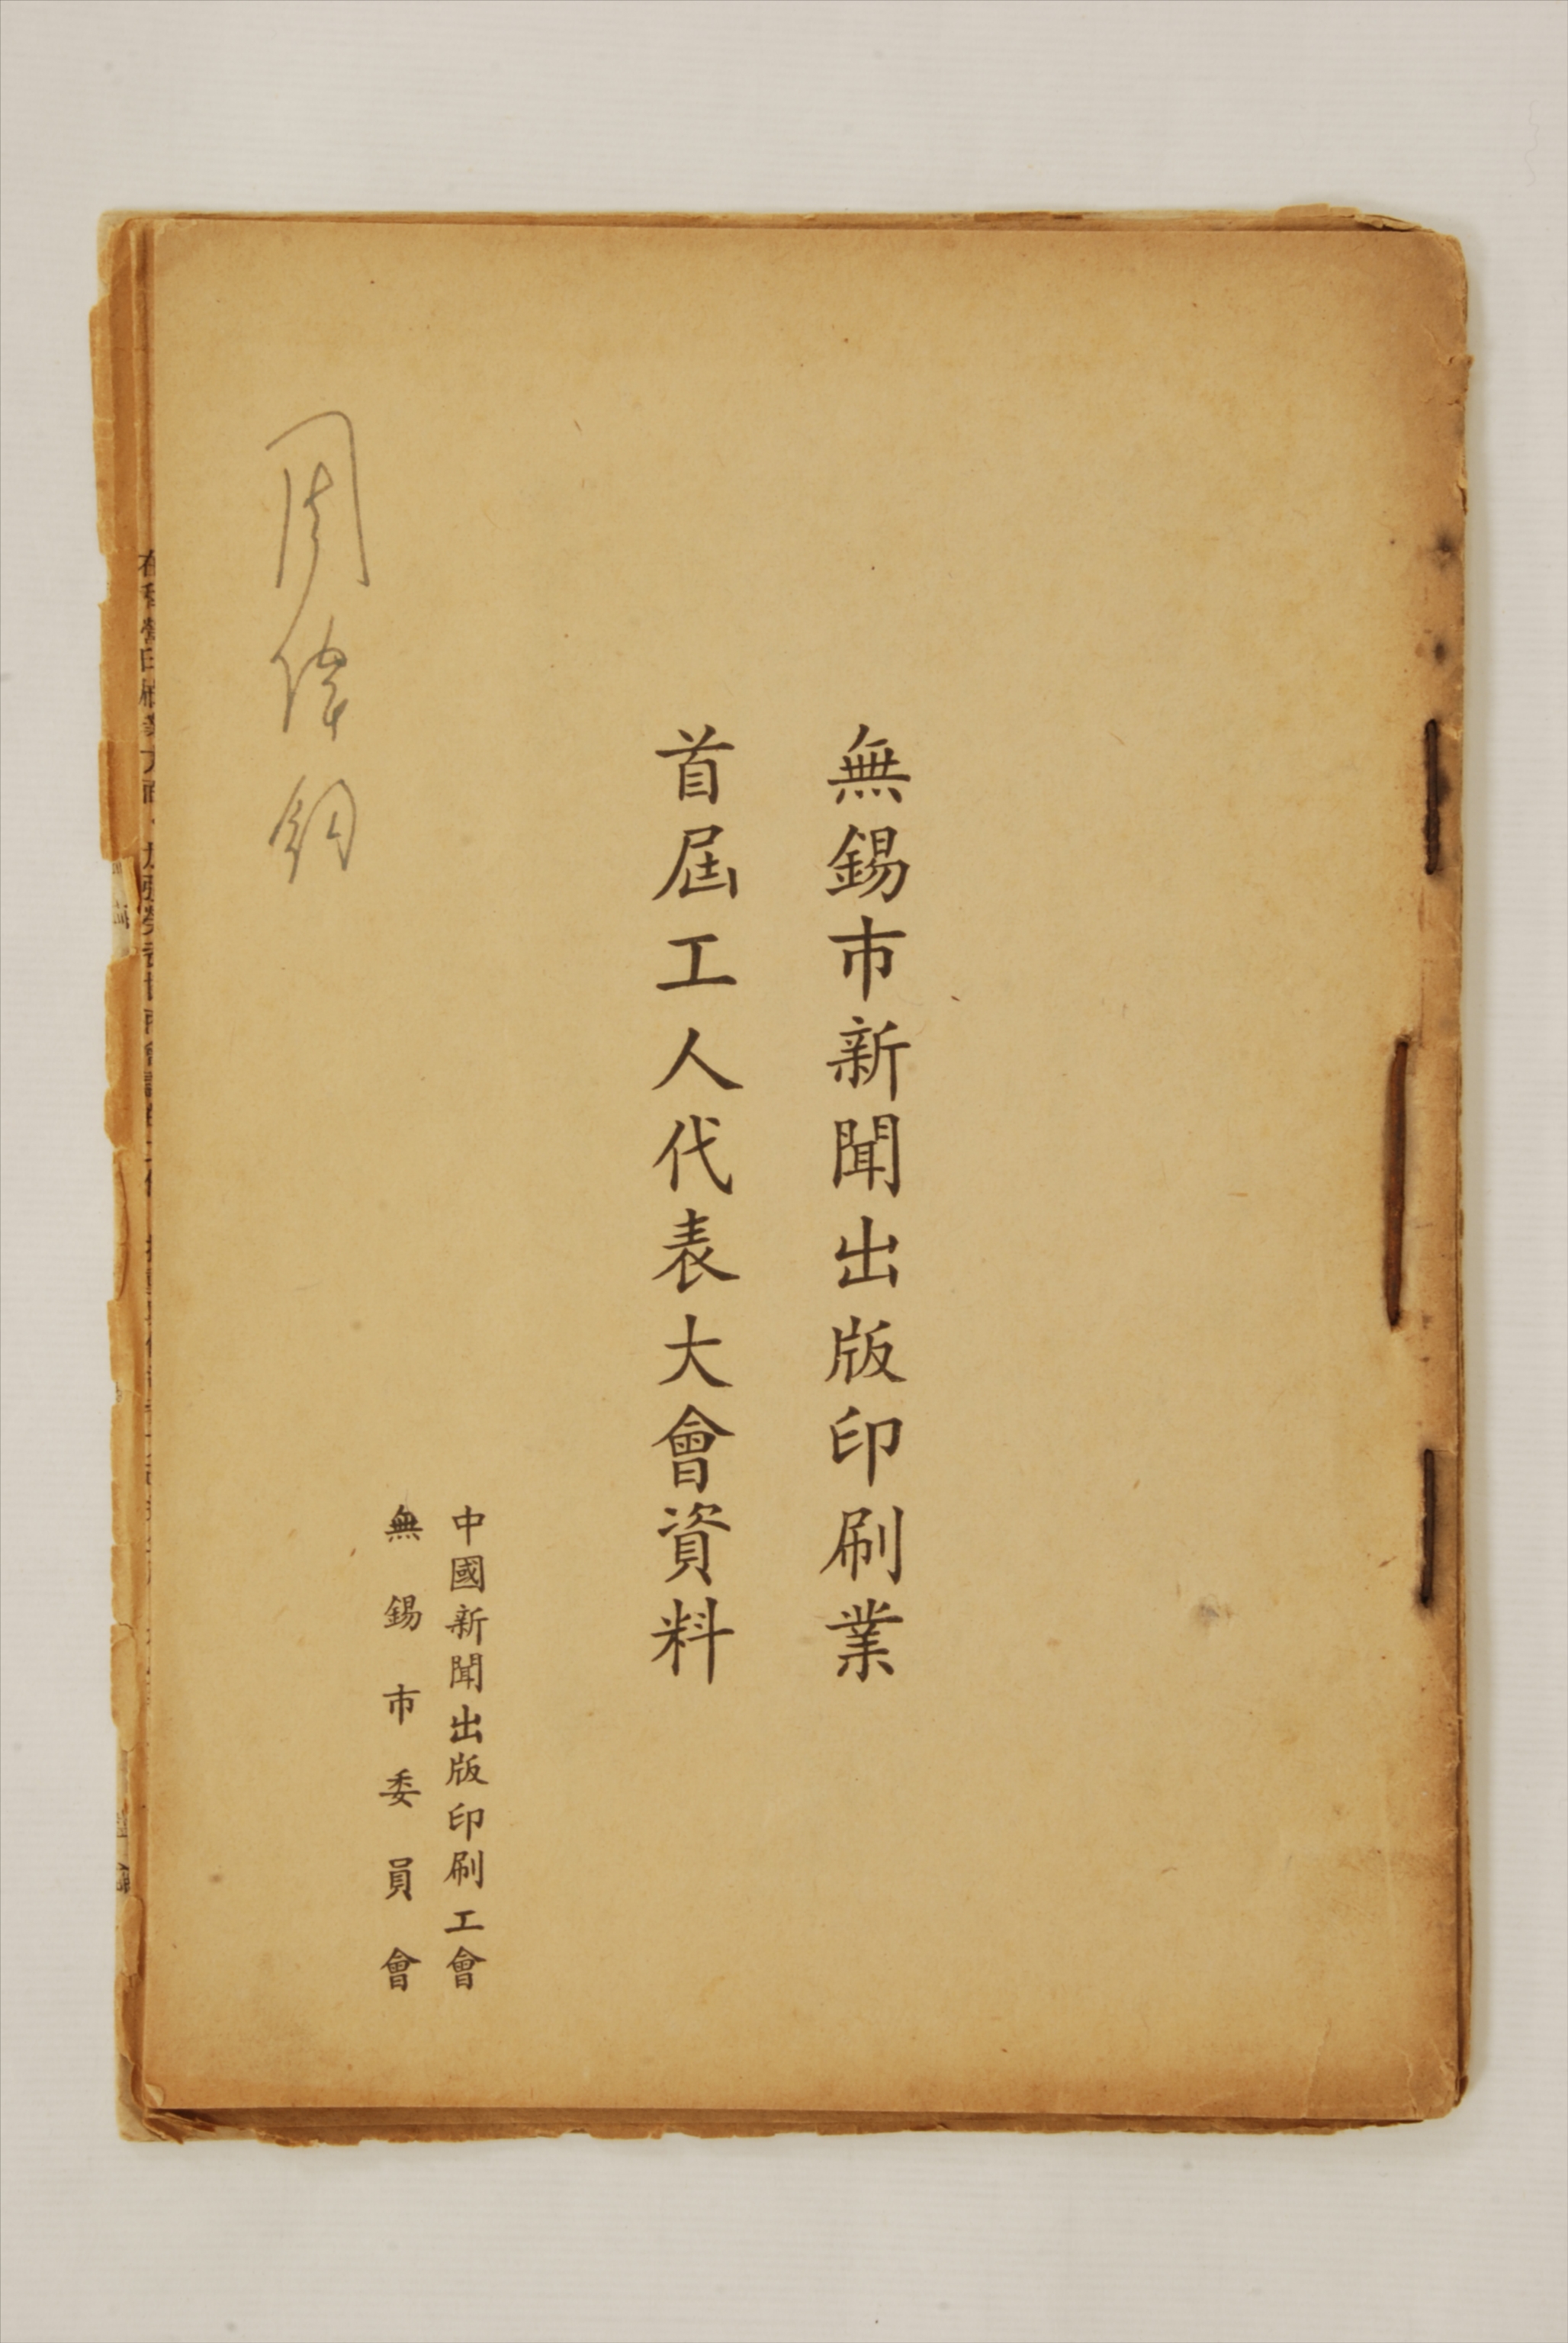 無錫市新聞出版印刷業
首屆工人代表大會資料
中國新聞出版印刷工會
無錫市委員會
周偉鈞